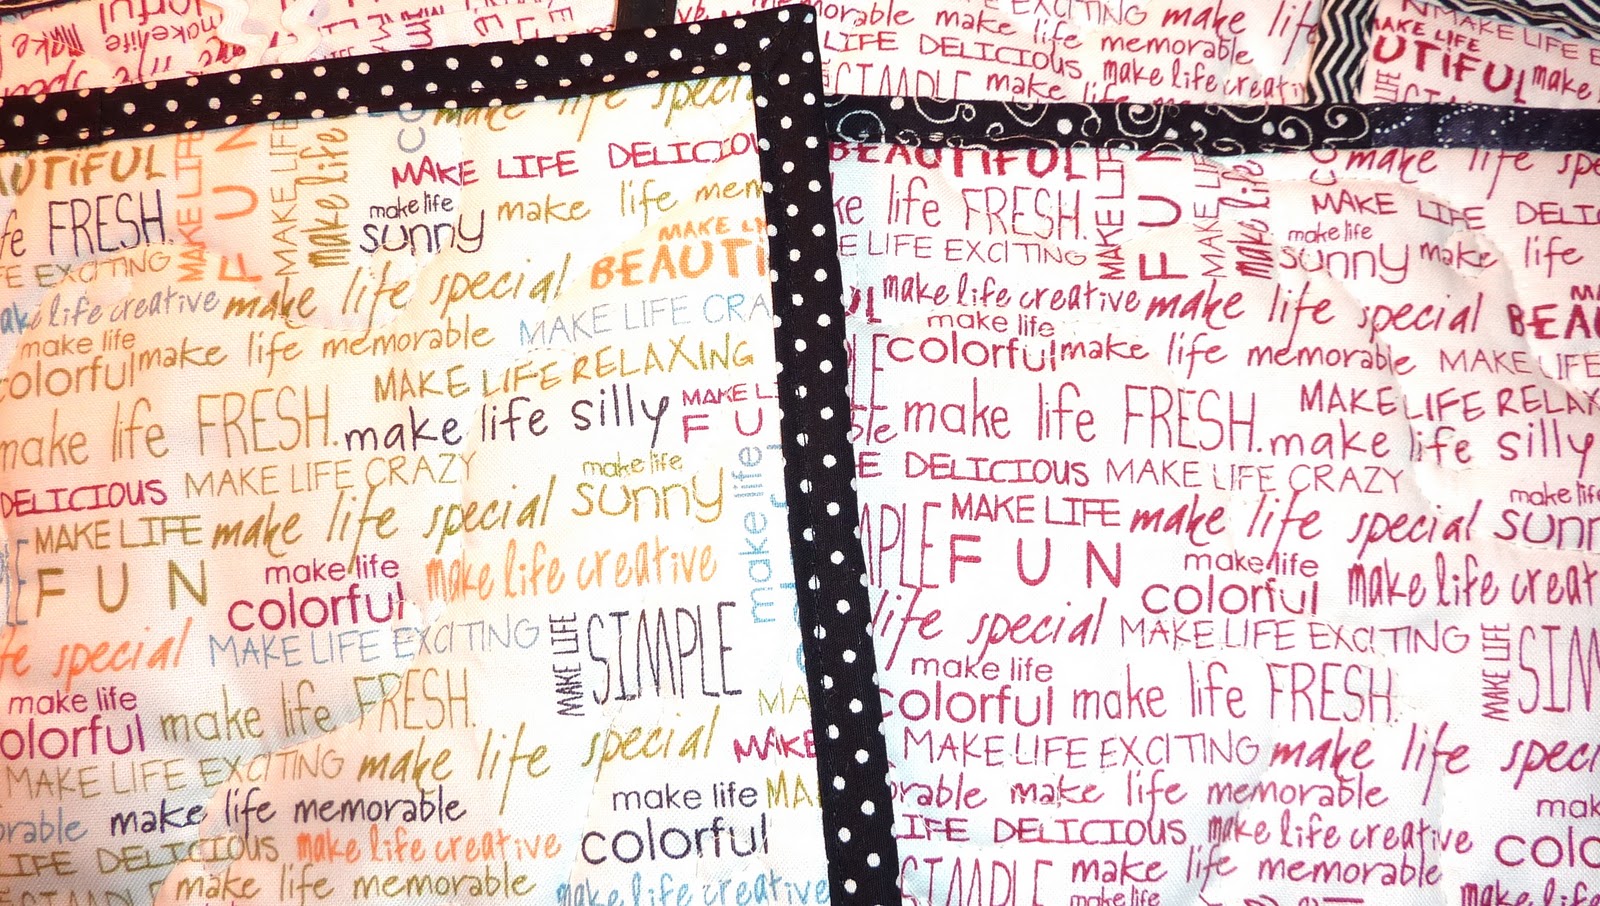 morable make life EXCITING make life
LIFE DELICIOUS make life memorable
SIMPLE make life make life creative
NMAKE LIFE E
MAKE LIFE
make
make life special
AUTiFUL
MAKE LIFE
FUN
MAKE LIFE
make life
MAKE LIFE DELICIOU
fe FRESH.
make life
sunny
make life mem
FE EXCITING
MAKE LI
BEAUTi
make life creative make life special
make life
colorful make life memorable MAKE LIFE CRA
MAKE LIFE RELAXING
make life FRESH. make life silly
MAKE L
F U
DELICIOUS MAKE LIFE CRAZY
make life
sunny
make life
MAKE LIFE
FUN
make life special
make life
colorful
make life creative
fe special MAKE LIFE EXCITING
MAKE LIFE
SIMPLE
make life
olorful make life FRESH.
MA
MAKE LIFE EXCITING make life special MAKE
orable make life memorable
make life MA
colorful
LIFE DELICIOUS make life creative
SIMPLE make life memorable
make life creative
BEAUTiFUL
MAKE LIFE
FUN
MAKE LIFE
make life
make life spe
ke life FRESH.
MAKE LIFE DELIC
make life
sunny
make life
E LIFE EXCITING
make life creative make life special
BEA
make life
colorful make life memorable MAKE LIFE
MAKE LIFE RELAX
make life FRESH. make life silly
E DELICIOUS MAKE LIFE CRAZY
make life
sunn
MAKE LIFE
FUN
make life special
make life
colorful
make life creat
life special MAKE LIFE EXCITING
MAKE LIFE
SIM
make life
colorful make life FRESH.
MAKE LIFE EXCITING make life speci
orable make life memorable
mak
colo
LIFE DELICIOUS make life creative
SIMPLE make life memorable
make life
make life